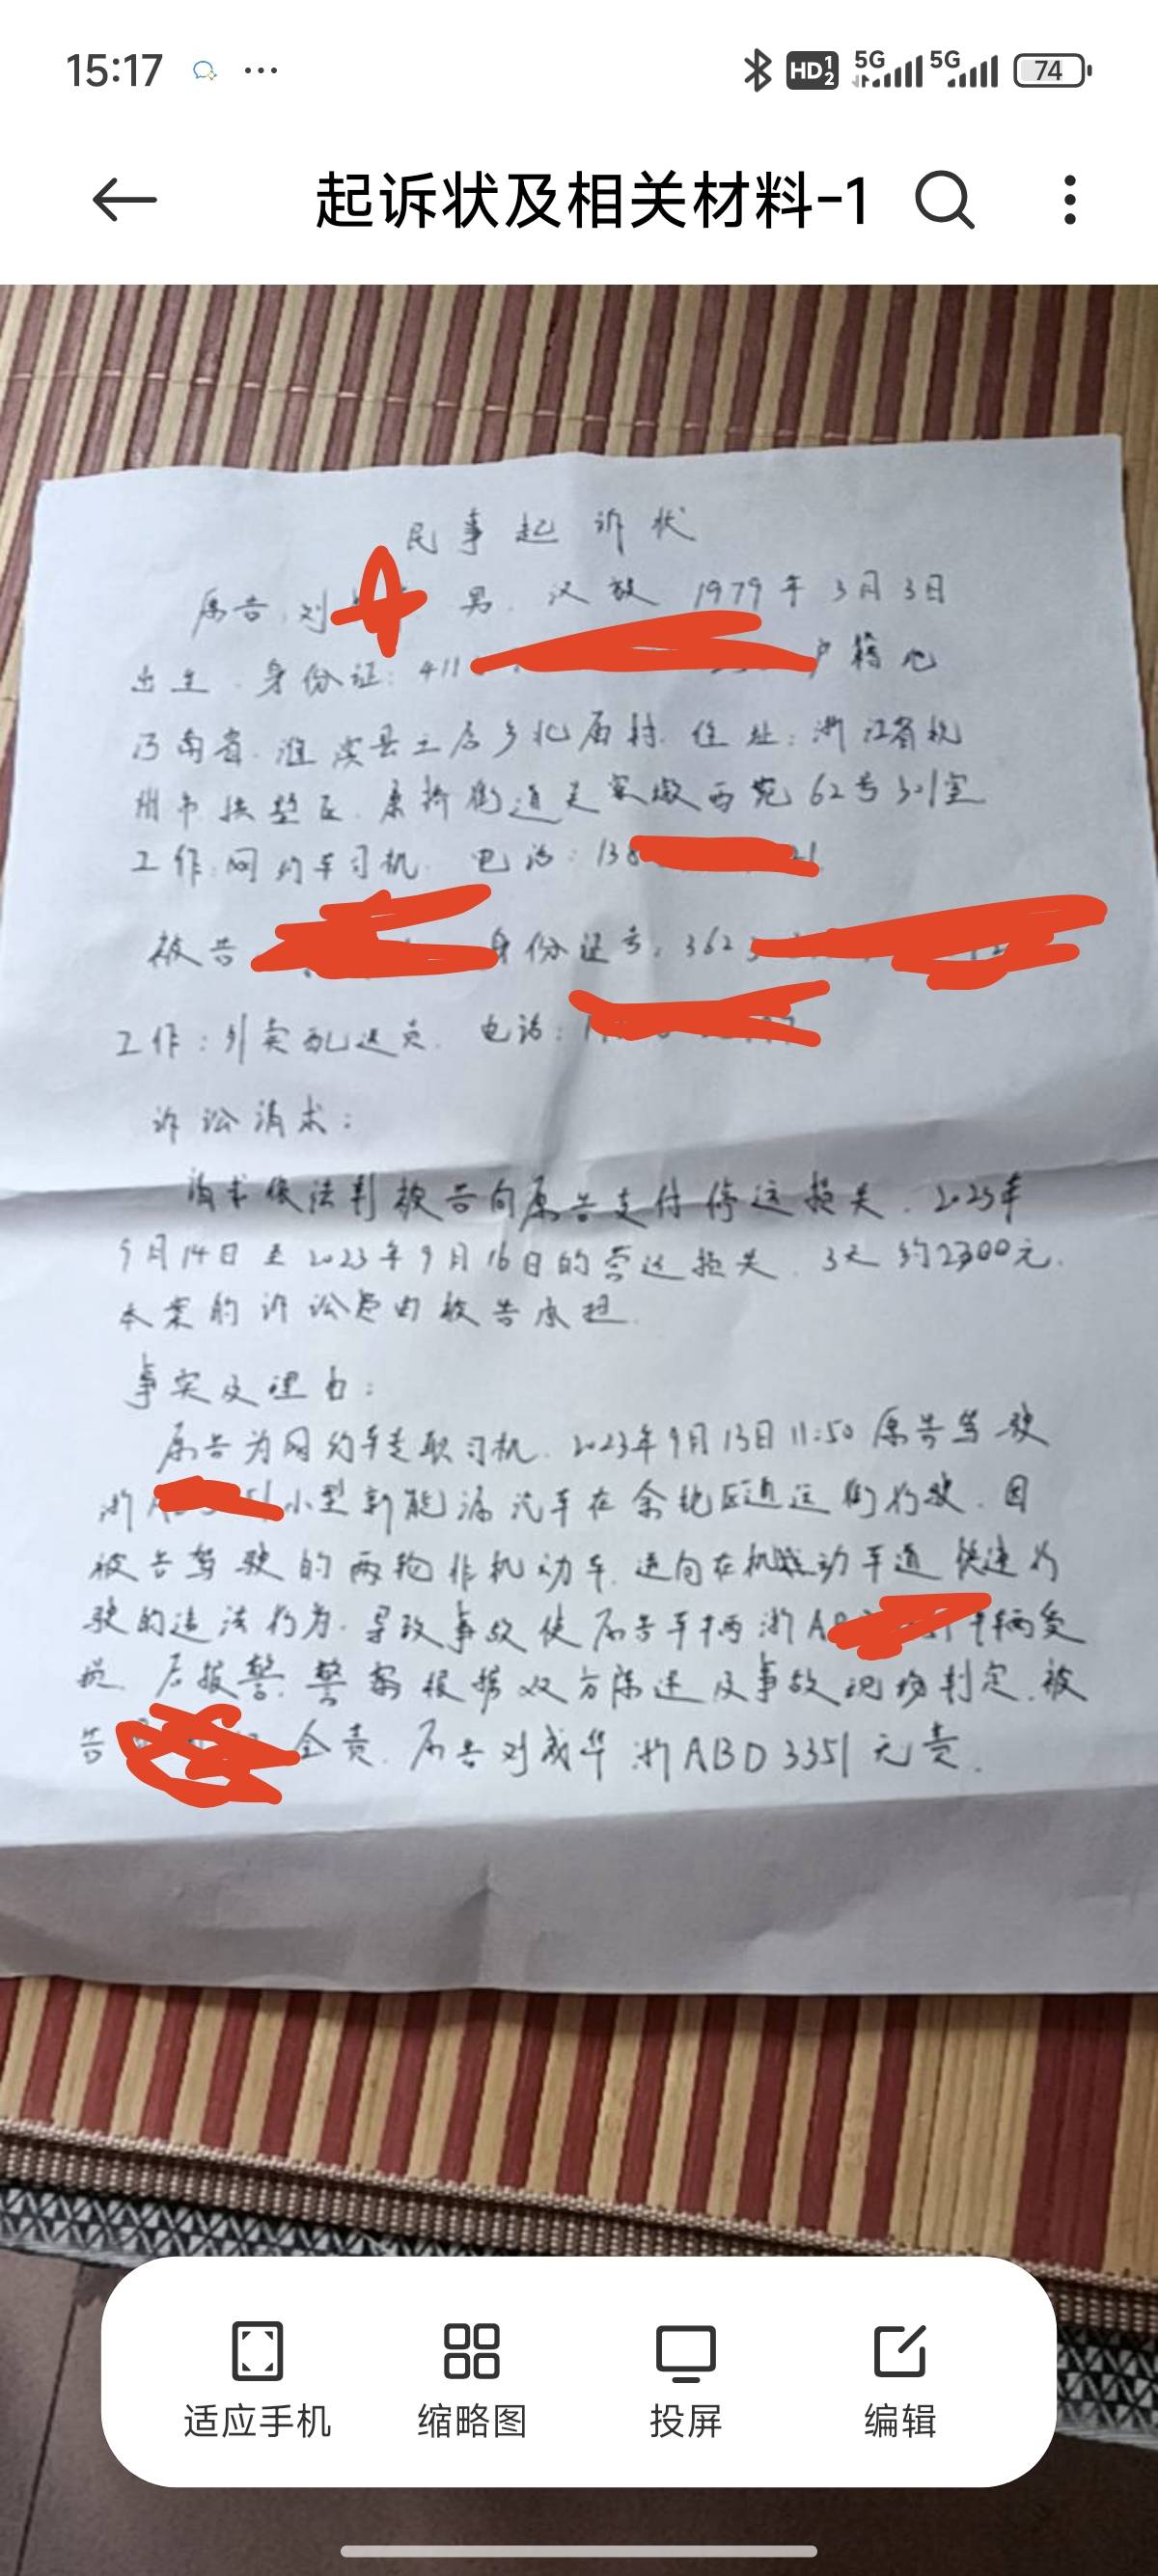 15:17
HD 1 2 5G 5G 74
起诉状及相关材料-1
民事起诉状
原告 刘 男 汉族 1979年3月3日
出生 身份证: 411 户籍地
河南省 县 乡 村 住址: 浙江省杭
州市拱墅区 康桥街道 西苑62号301室
工作 网约车司机 电话: 138 21
被告 身份证号: 362
工作: 外卖配送员 电话: 1
诉讼请求:
请求依法判被告向原告支付停运损失 2023年
9月14日至2023年9月16日的营运损失 3天约2300元
本案的诉讼费由被告承担
事实及理由:
原告为网约车专职司机 2023年9月13日11:50原告驾驶
浙A 小型新能源汽车在余杭区 街行驶 因
被告驾驶的两轮非机动车 逆向在机 动车道快速行
驶的违法行为 导致事故使原告车辆浙A 车辆受
损 后报警 警察根据双方陈述及事故现场判定 被
告 全责 原告刘成华 浙ABD3351无责
适应手机 缩略图 投屏 编辑